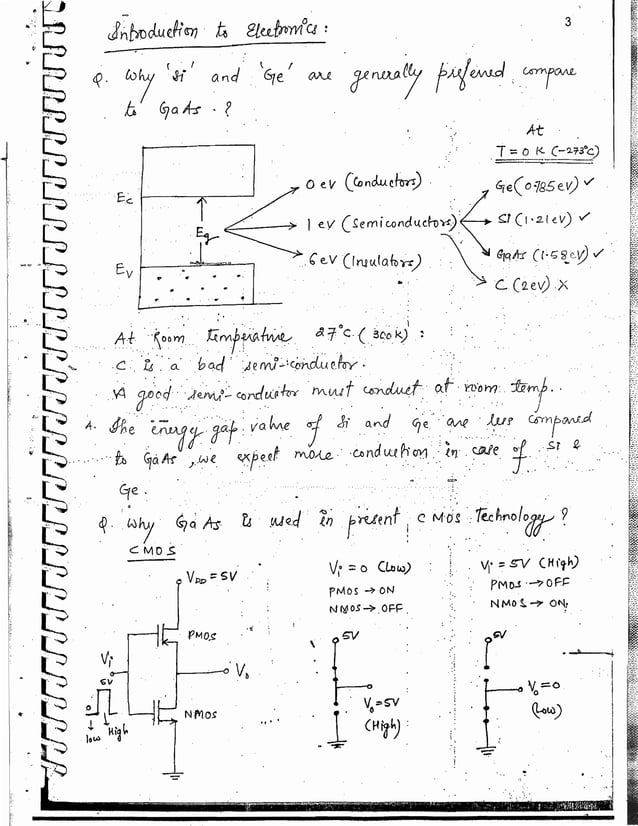 3
Introduction to Electronics :
Q. Why 'Si' and 'Ge' are generally preferred compare
to GaAs . ?
At
T = 0 K (-273°C)
Ec
Eg
Ev
0 ev (Conductors)
1 ev (Semiconductors)
6 eV (Insulators)
Ge (0.785 eV) ✓
Si (1.21 eV) ✓
GaAs (1.58 eV) ✓
C (2 eV) X
At Room temperature 27°C (300K) :
C is a bad semi-conductor.
A good semi-conductor must conduct at room temp.
A. The energy gap value of Si and Ge are less compared
to GaAs, we expect more conduction in case of Si &
Ge.
Q. Why GaAs is used in present CMOS Technology ?
CMOS
VDD = 5V
PMOS
Vi
5V
0
low
High
NMOS
Vo
Vi = 0 (Low)
PMOS → ON
NMOS → OFF
5V
Vo = 5V
(High)
Vi = 5V (High)
PMOS → OFF
NMOS → ON
5V
Vo = 0
(Low)